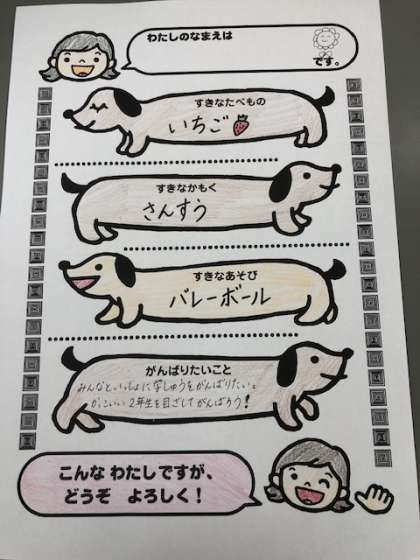 わたしのなまえは
です。
すきなたべもの
いちご
すきなかもく
さんすう
すきなあそび
バレーボール
がんばりたいこと
みんなといっしょに学しゅうをがんばりたい。
かっこいい2年生を目ざしてがんばろう!
こんな わたしですが、
どうぞ よろしく!